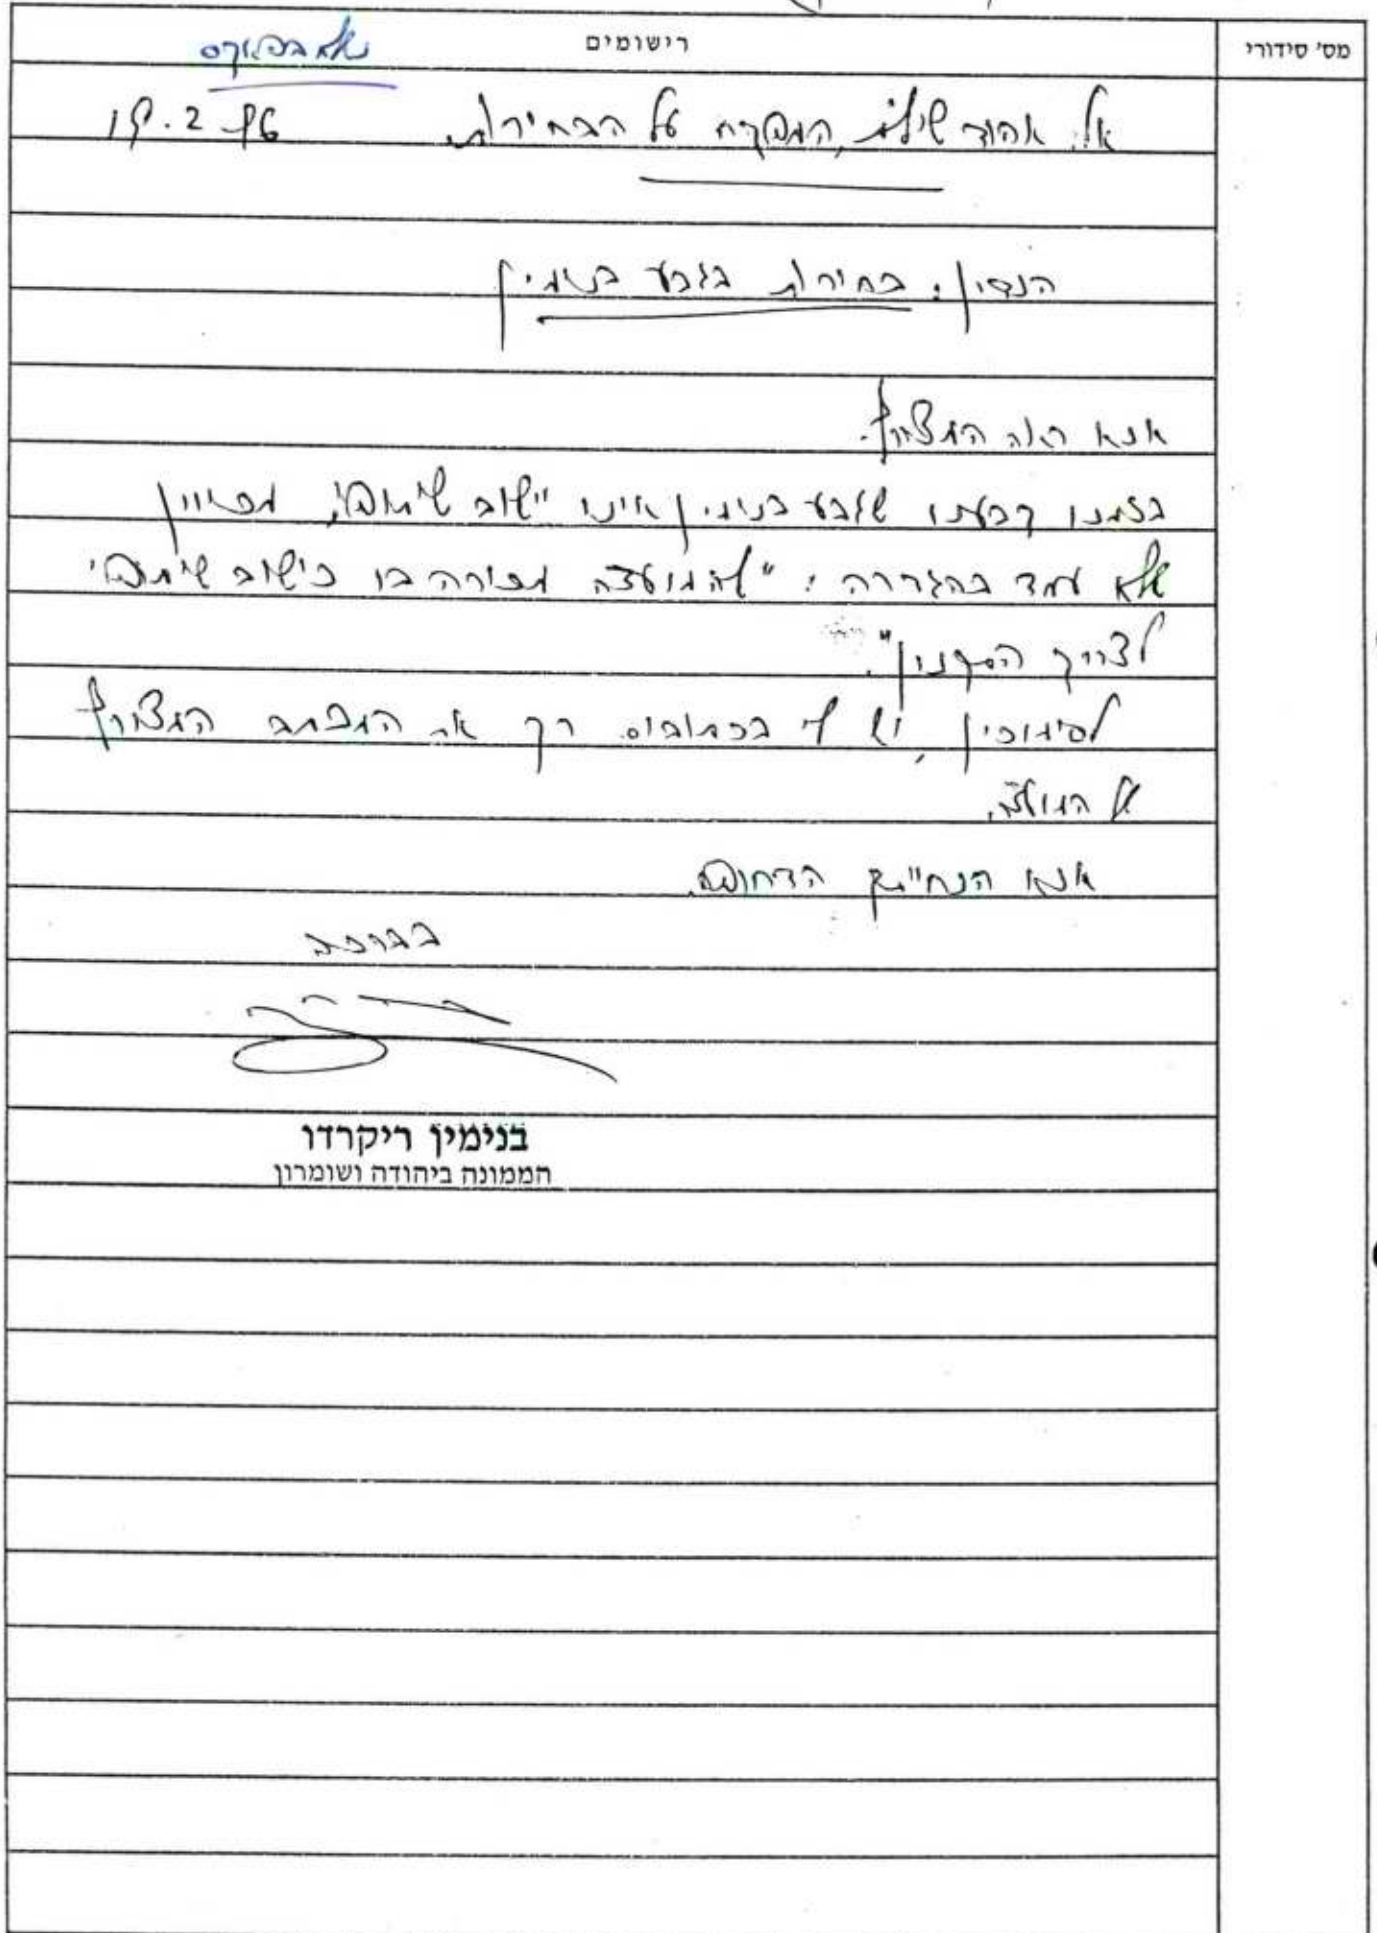 מס' סידורי
רישומים
נשלח בפקס
אל: אהוד שילת, המפקח על הבחירות 19.2.96
הנדון: בחירות בגבע בנימין
אנא ראה המצורף.
בזמנו קבענו שגבע בנימין אינו "ישוב שיתופי", מכיוון
שלא עמד בהגדרה: "שהמועצה מכירה בו כישוב שיתופי
לצורך התקנון".
לסימוכין, יש לי בכתובים רק את המכתב המצורף
של המועצה.
אנא הנחייתך הדחופה.
בברכה
בנימין ריקרדו
הממונה ביהודה ושומרון